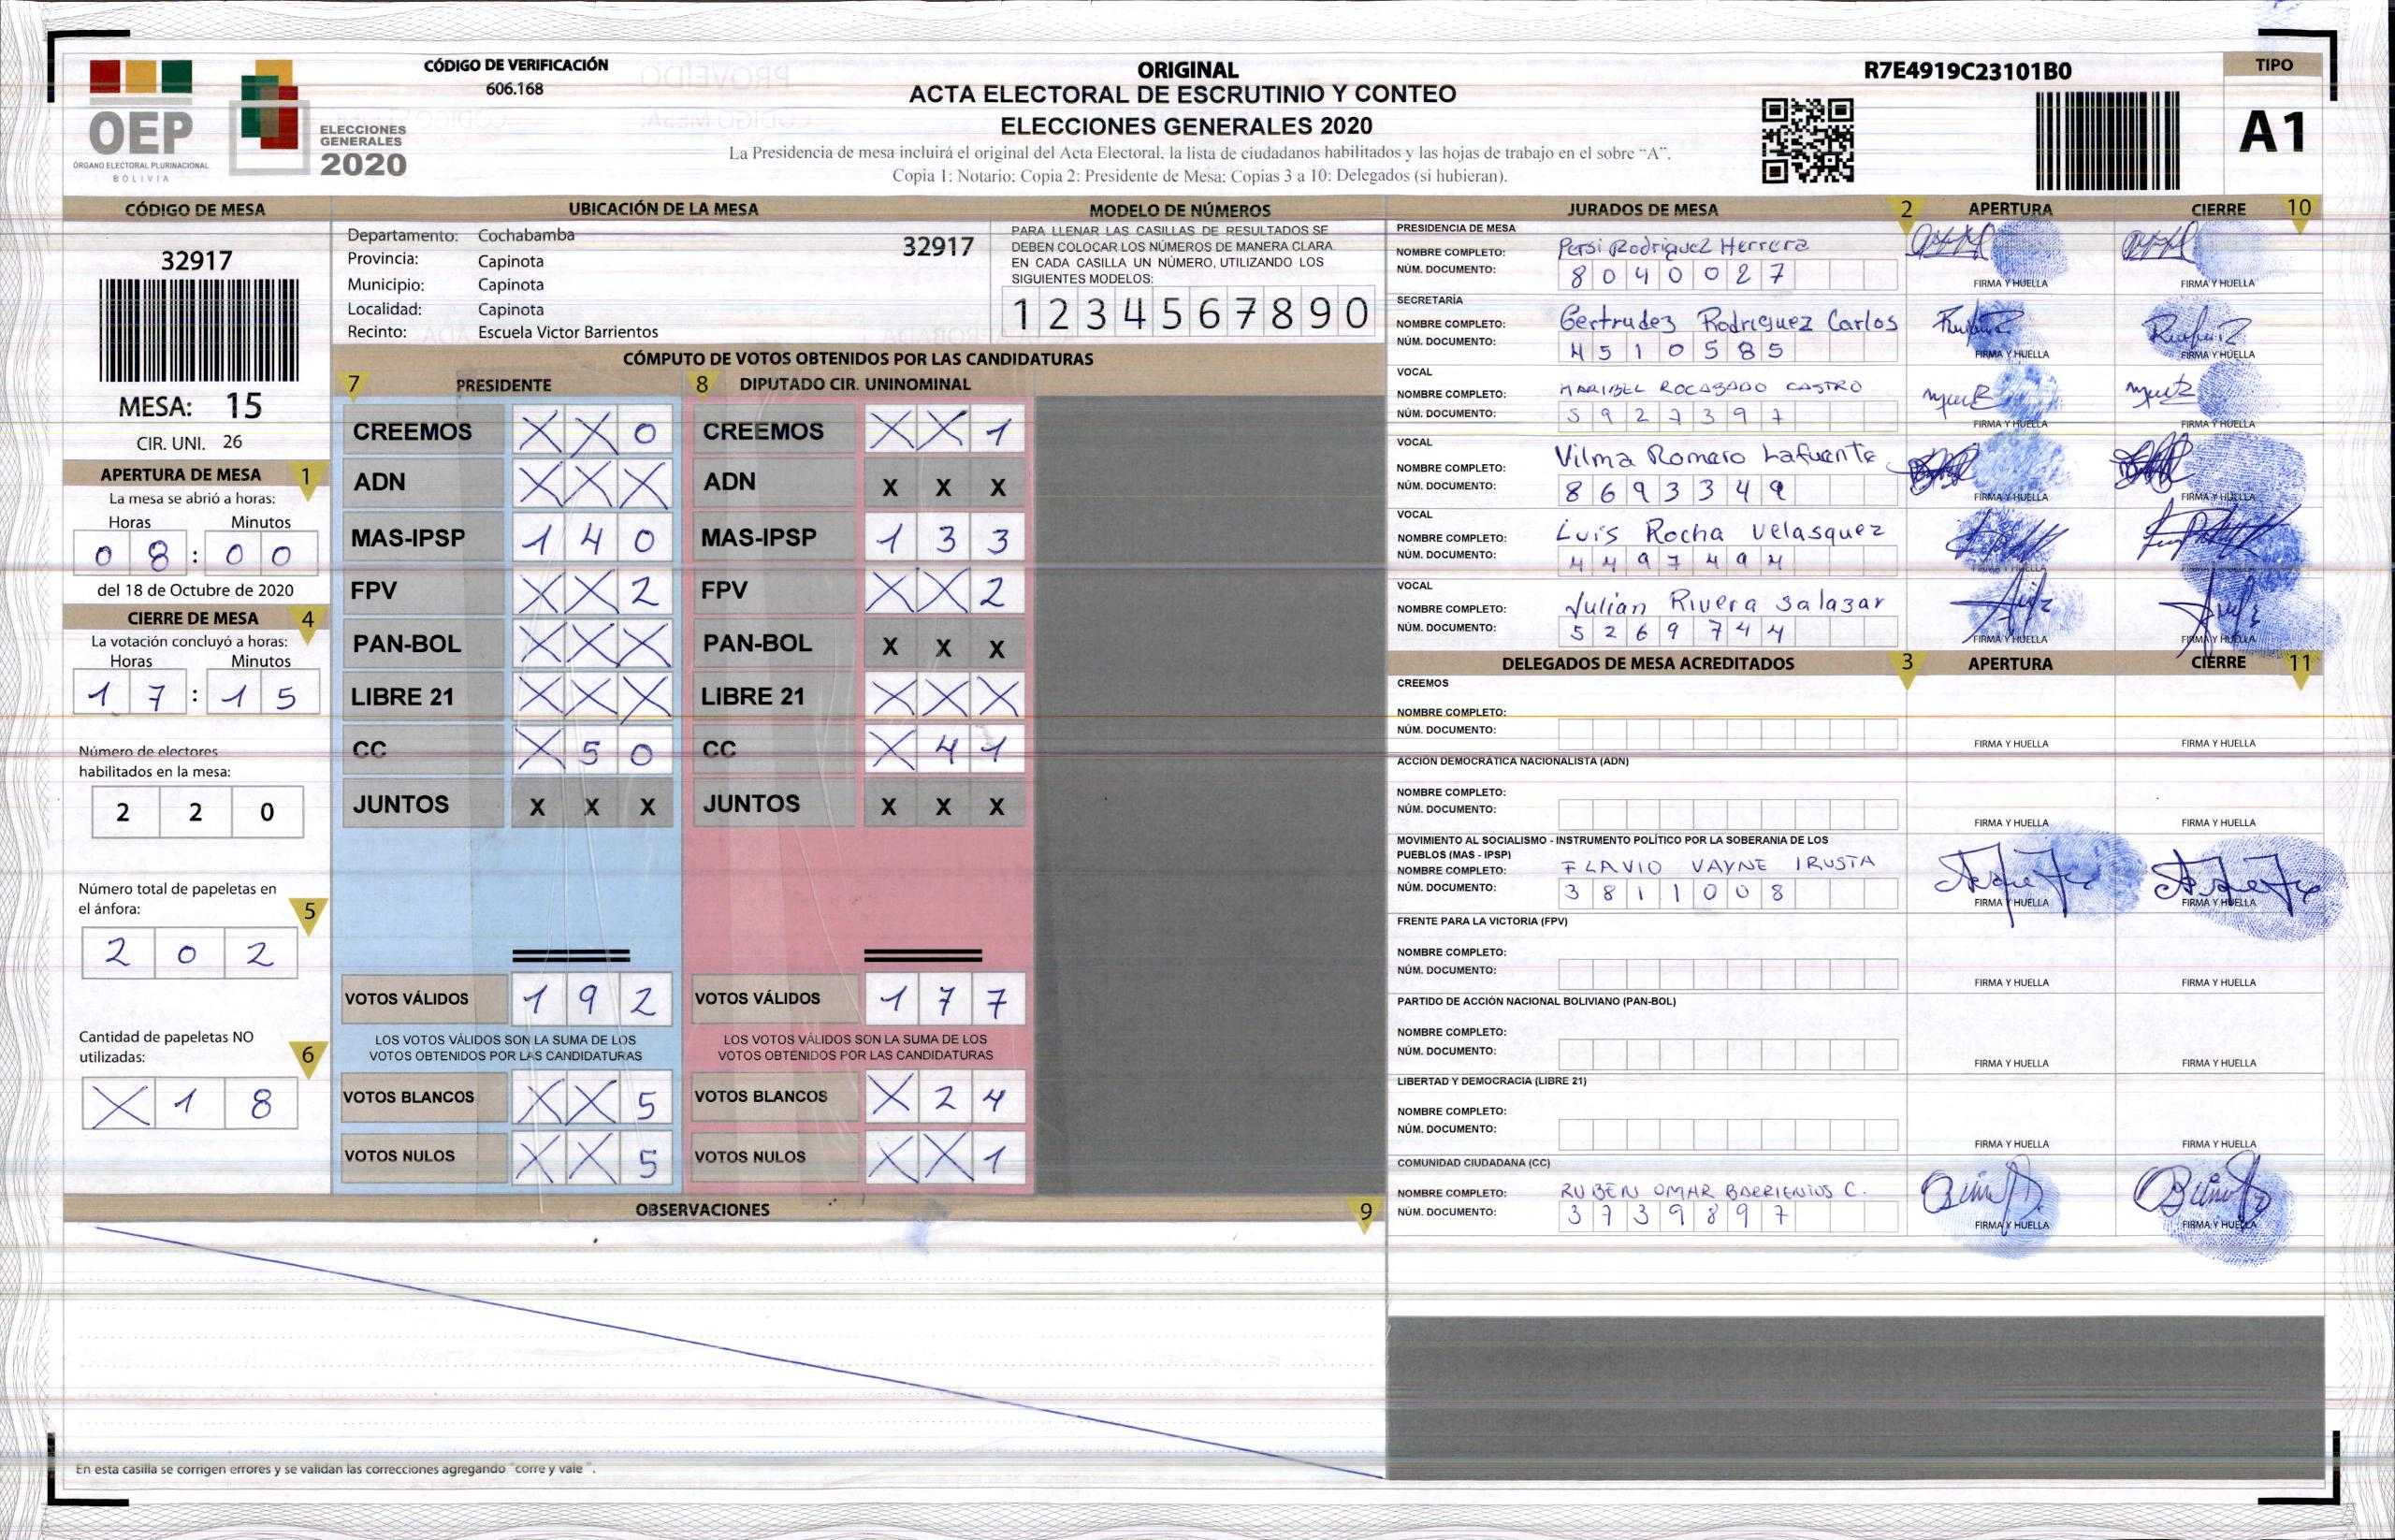 CÓDIGO DE VERIFICACIÓN
606.168
OEP
ÓRGANO ELECTORAL PLURINACIONAL
BOLIVIA
ELECCIONES
GENERALES
2020
ORIGINAL
ACTA ELECTORAL DE ESCRUTINIO Y CONTEO
ELECCIONES GENERALES 2020
La Presidencia de mesa incluirá el original del Acta Electoral, la lista de ciudadanos habilitados y las hojas de trabajo en el sobre "A".
Copia 1: Notario; Copia 2: Presidente de Mesa; Copias 3 a 10: Delegados (si hubieran).
R7E4919C23101B0
TIPO
A1
CÓDIGO DE MESA
32917
MESA: 15
CIR. UNI. 26
APERTURA DE MESA 1
La mesa se abrió a horas:
Horas Minutos
0 8 : 0 0
del 18 de Octubre de 2020
CIERRE DE MESA 4
La votación concluyó a horas:
Horas Minutos
1 7 : 1 5
Número de electores
habilitados en la mesa:
2 2 0
Número total de papeletas en
el ánfora: 5
2 0 2
Cantidad de papeletas NO
utilizadas: 6
X 1 8
UBICACIÓN DE LA MESA
Departamento: Cochabamba
32917
Provincia: Capinota
Municipio: Capinota
Localidad: Capinota
Recinto: Escuela Victor Barrientos
MODELO DE NÚMEROS
PARA LLENAR LAS CASILLAS DE RESULTADOS SE
DEBEN COLOCAR LOS NÚMEROS DE MANERA CLARA
EN CADA CASILLA UN NÚMERO, UTILIZANDO LOS
SIGUIENTES MODELOS:
1 2 3 4 5 6 7 8 9 0
CÓMPUTO DE VOTOS OBTENIDOS POR LAS CANDIDATURAS
7 PRESIDENTE 8 DIPUTADO CIR. UNINOMINAL
CREEMOS X X 0 CREEMOS X X 1
ADN X X X ADN X X X
MAS-IPSP 1 4 0 MAS-IPSP 1 3 3
FPV X X 2 FPV X X 2
PAN-BOL X X X PAN-BOL X X X
LIBRE 21 X X X LIBRE 21 X X X
CC X 5 0 CC X 4 1
JUNTOS X X X JUNTOS X X X
VOTOS VÁLIDOS 1 9 2 VOTOS VÁLIDOS 1 7 7
LOS VOTOS VÁLIDOS SON LA SUMA DE LOS LOS VOTOS VÁLIDOS SON LA SUMA DE LOS
VOTOS OBTENIDOS POR LAS CANDIDATURAS VOTOS OBTENIDOS POR LAS CANDIDATURAS
VOTOS BLANCOS X X 5 VOTOS BLANCOS X 2 4
VOTOS NULOS X X 5 VOTOS NULOS X X 1
OBSERVACIONES 9
En esta casilla se corrigen errores y se validan las correcciones agregando "corre y vale".
JURADOS DE MESA 2 APERTURA CIERRE 10
PRESIDENCIA DE MESA
NOMBRE COMPLETO: Persi Rodriguez Herrera
NÚM. DOCUMENTO: 8 0 4 0 0 2 7
FIRMA Y HUELLA FIRMA Y HUELLA
SECRETARÍA
NOMBRE COMPLETO: Gertrudez Rodriguez Carlos
NÚM. DOCUMENTO: 4 5 1 0 5 8 5
FIRMA Y HUELLA FIRMA Y HUELLA
VOCAL
NOMBRE COMPLETO: MARIBEL ROCABADO CASTRO
NÚM. DOCUMENTO: 5 9 2 7 3 9 7
FIRMA Y HUELLA FIRMA Y HUELLA
VOCAL
NOMBRE COMPLETO: Vilma Romero Lafuente
NÚM. DOCUMENTO: 8 6 9 3 3 4 9
FIRMA Y HUELLA FIRMA Y HUELLA
VOCAL
NOMBRE COMPLETO: Luis Rocha Velasquez
NÚM. DOCUMENTO: 4 4 9 7 4 9 4
FIRMA Y HUELLA
VOCAL
NOMBRE COMPLETO: Julian Rivera Salazar
NÚM. DOCUMENTO: 5 2 6 9 7 4 4
FIRMA Y HUELLA FIRMA Y HUELLA
DELEGADOS DE MESA ACREDITADOS 3 APERTURA CIERRE 11
CREEMOS
NOMBRE COMPLETO:
NÚM. DOCUMENTO:
FIRMA Y HUELLA FIRMA Y HUELLA
ACCIÓN DEMOCRÁTICA NACIONALISTA (ADN)
NOMBRE COMPLETO:
NÚM. DOCUMENTO:
FIRMA Y HUELLA FIRMA Y HUELLA
MOVIMIENTO AL SOCIALISMO - INSTRUMENTO POLÍTICO POR LA SOBERANIA DE LOS
PUEBLOS (MAS - IPSP)
NOMBRE COMPLETO: FLAVIO VAYNE IRUSTA
NÚM. DOCUMENTO: 3 8 1 1 0 0 8
FIRMA Y HUELLA FIRMA Y HUELLA
FRENTE PARA LA VICTORIA (FPV)
NOMBRE COMPLETO:
NÚM. DOCUMENTO:
FIRMA Y HUELLA FIRMA Y HUELLA
PARTIDO DE ACCIÓN NACIONAL BOLIVIANO (PAN-BOL)
NOMBRE COMPLETO:
NÚM. DOCUMENTO:
FIRMA Y HUELLA FIRMA Y HUELLA
LIBERTAD Y DEMOCRACIA (LIBRE 21)
NOMBRE COMPLETO:
NÚM. DOCUMENTO:
FIRMA Y HUELLA FIRMA Y HUELLA
COMUNIDAD CIUDADANA (CC)
NOMBRE COMPLETO: RUBEN OMAR BARRIENTOS C.
NÚM. DOCUMENTO: 3 7 3 9 8 9 7
FIRMA Y HUELLA FIRMA Y HUELLA